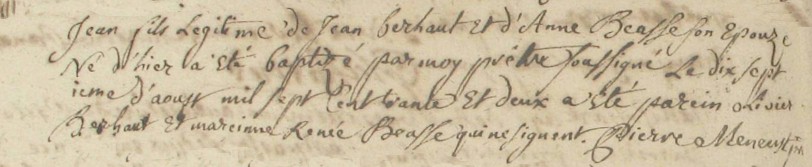 Jean fils Legitime de Jean berhaut Et d'Anne Beasse son Epouze
Né d'hier a Eté baptizé par moy prêtre soussigné Le dix sept
ieme d'aoust mil sept Cent trante Et deux a Eté parein olivier
Berhaut Et mareinne Renée Beasse qui ne signent. Pierre Meneust